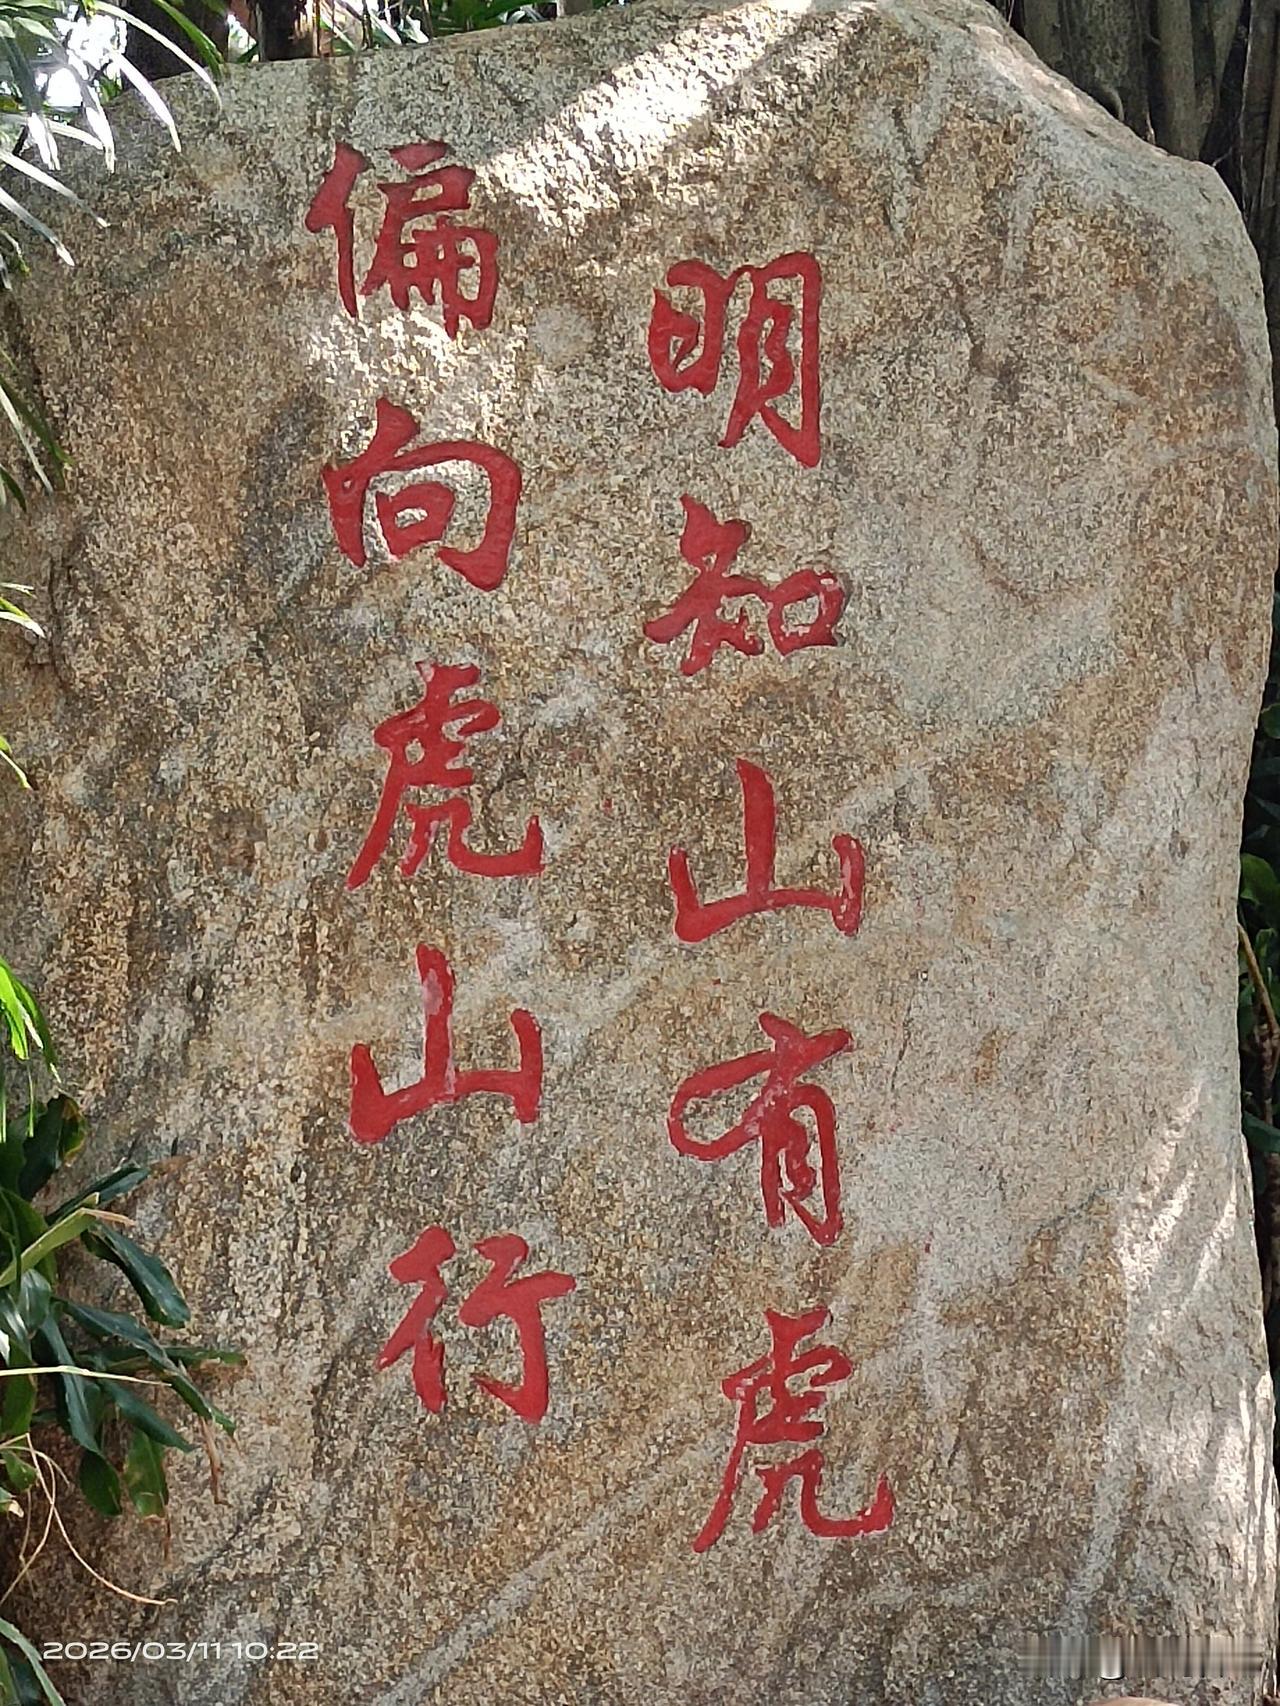 明知山有虎
偏向虎山行
2026/03/11 10:22